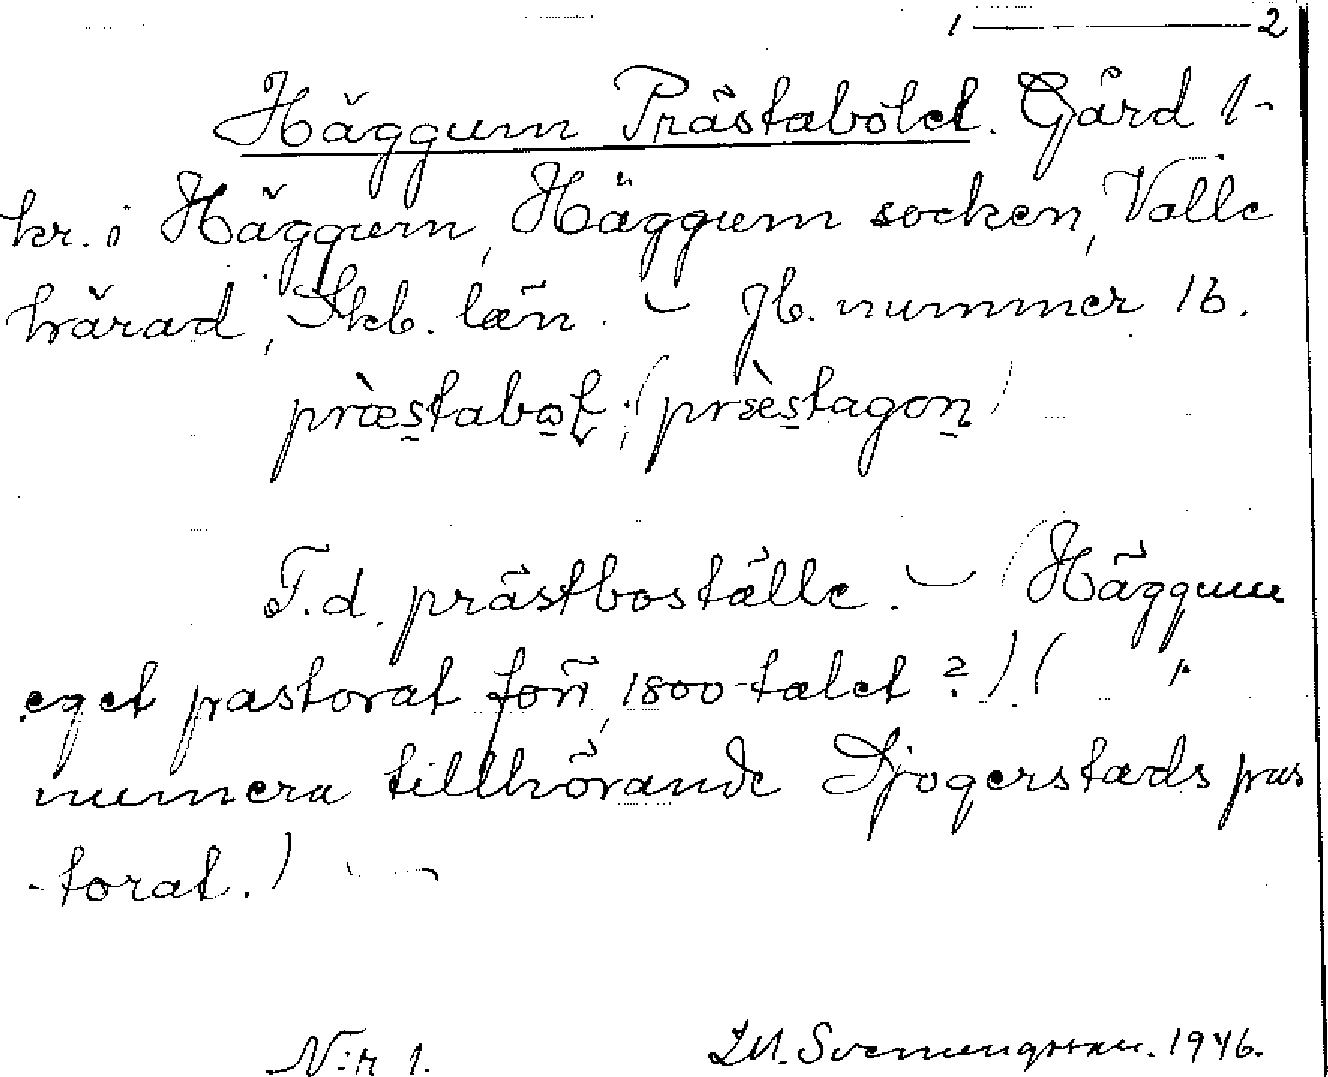 1 ——— 2
Häggum Prästabolet. Gård 1
kr. i Häggum, Häggum socken, Valle
härad, Skb. län. – Jb. nummer 16.
præstabot; (præstagon)
T.d. prästboställe. – (Häggum
eget pastorat förr, 1800-talet?) (
numera tillhörande Djogerstads pas
-torat.)
N:r 1. Svenungsson. 1946.